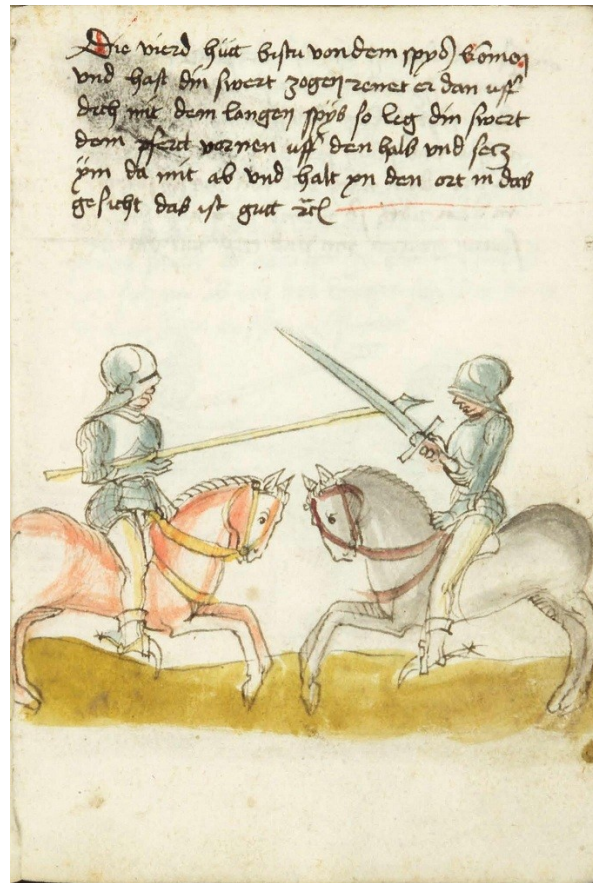 Die vierd hütt bistu von dem spyß kōmen
vnd hast din swert zogen renet er dan uff
dich mit dem langen spyß so leg din swert
dem pferet vornen uff den hals vnd secz
ym da mit ab vnd halt yn den ort in das
gesicht das ist gutt